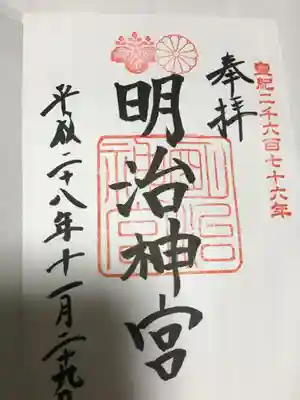 皇紀二千六百七十六年
奉拝
明治神宮
明治神宮
平成二十八年十一月二十九日